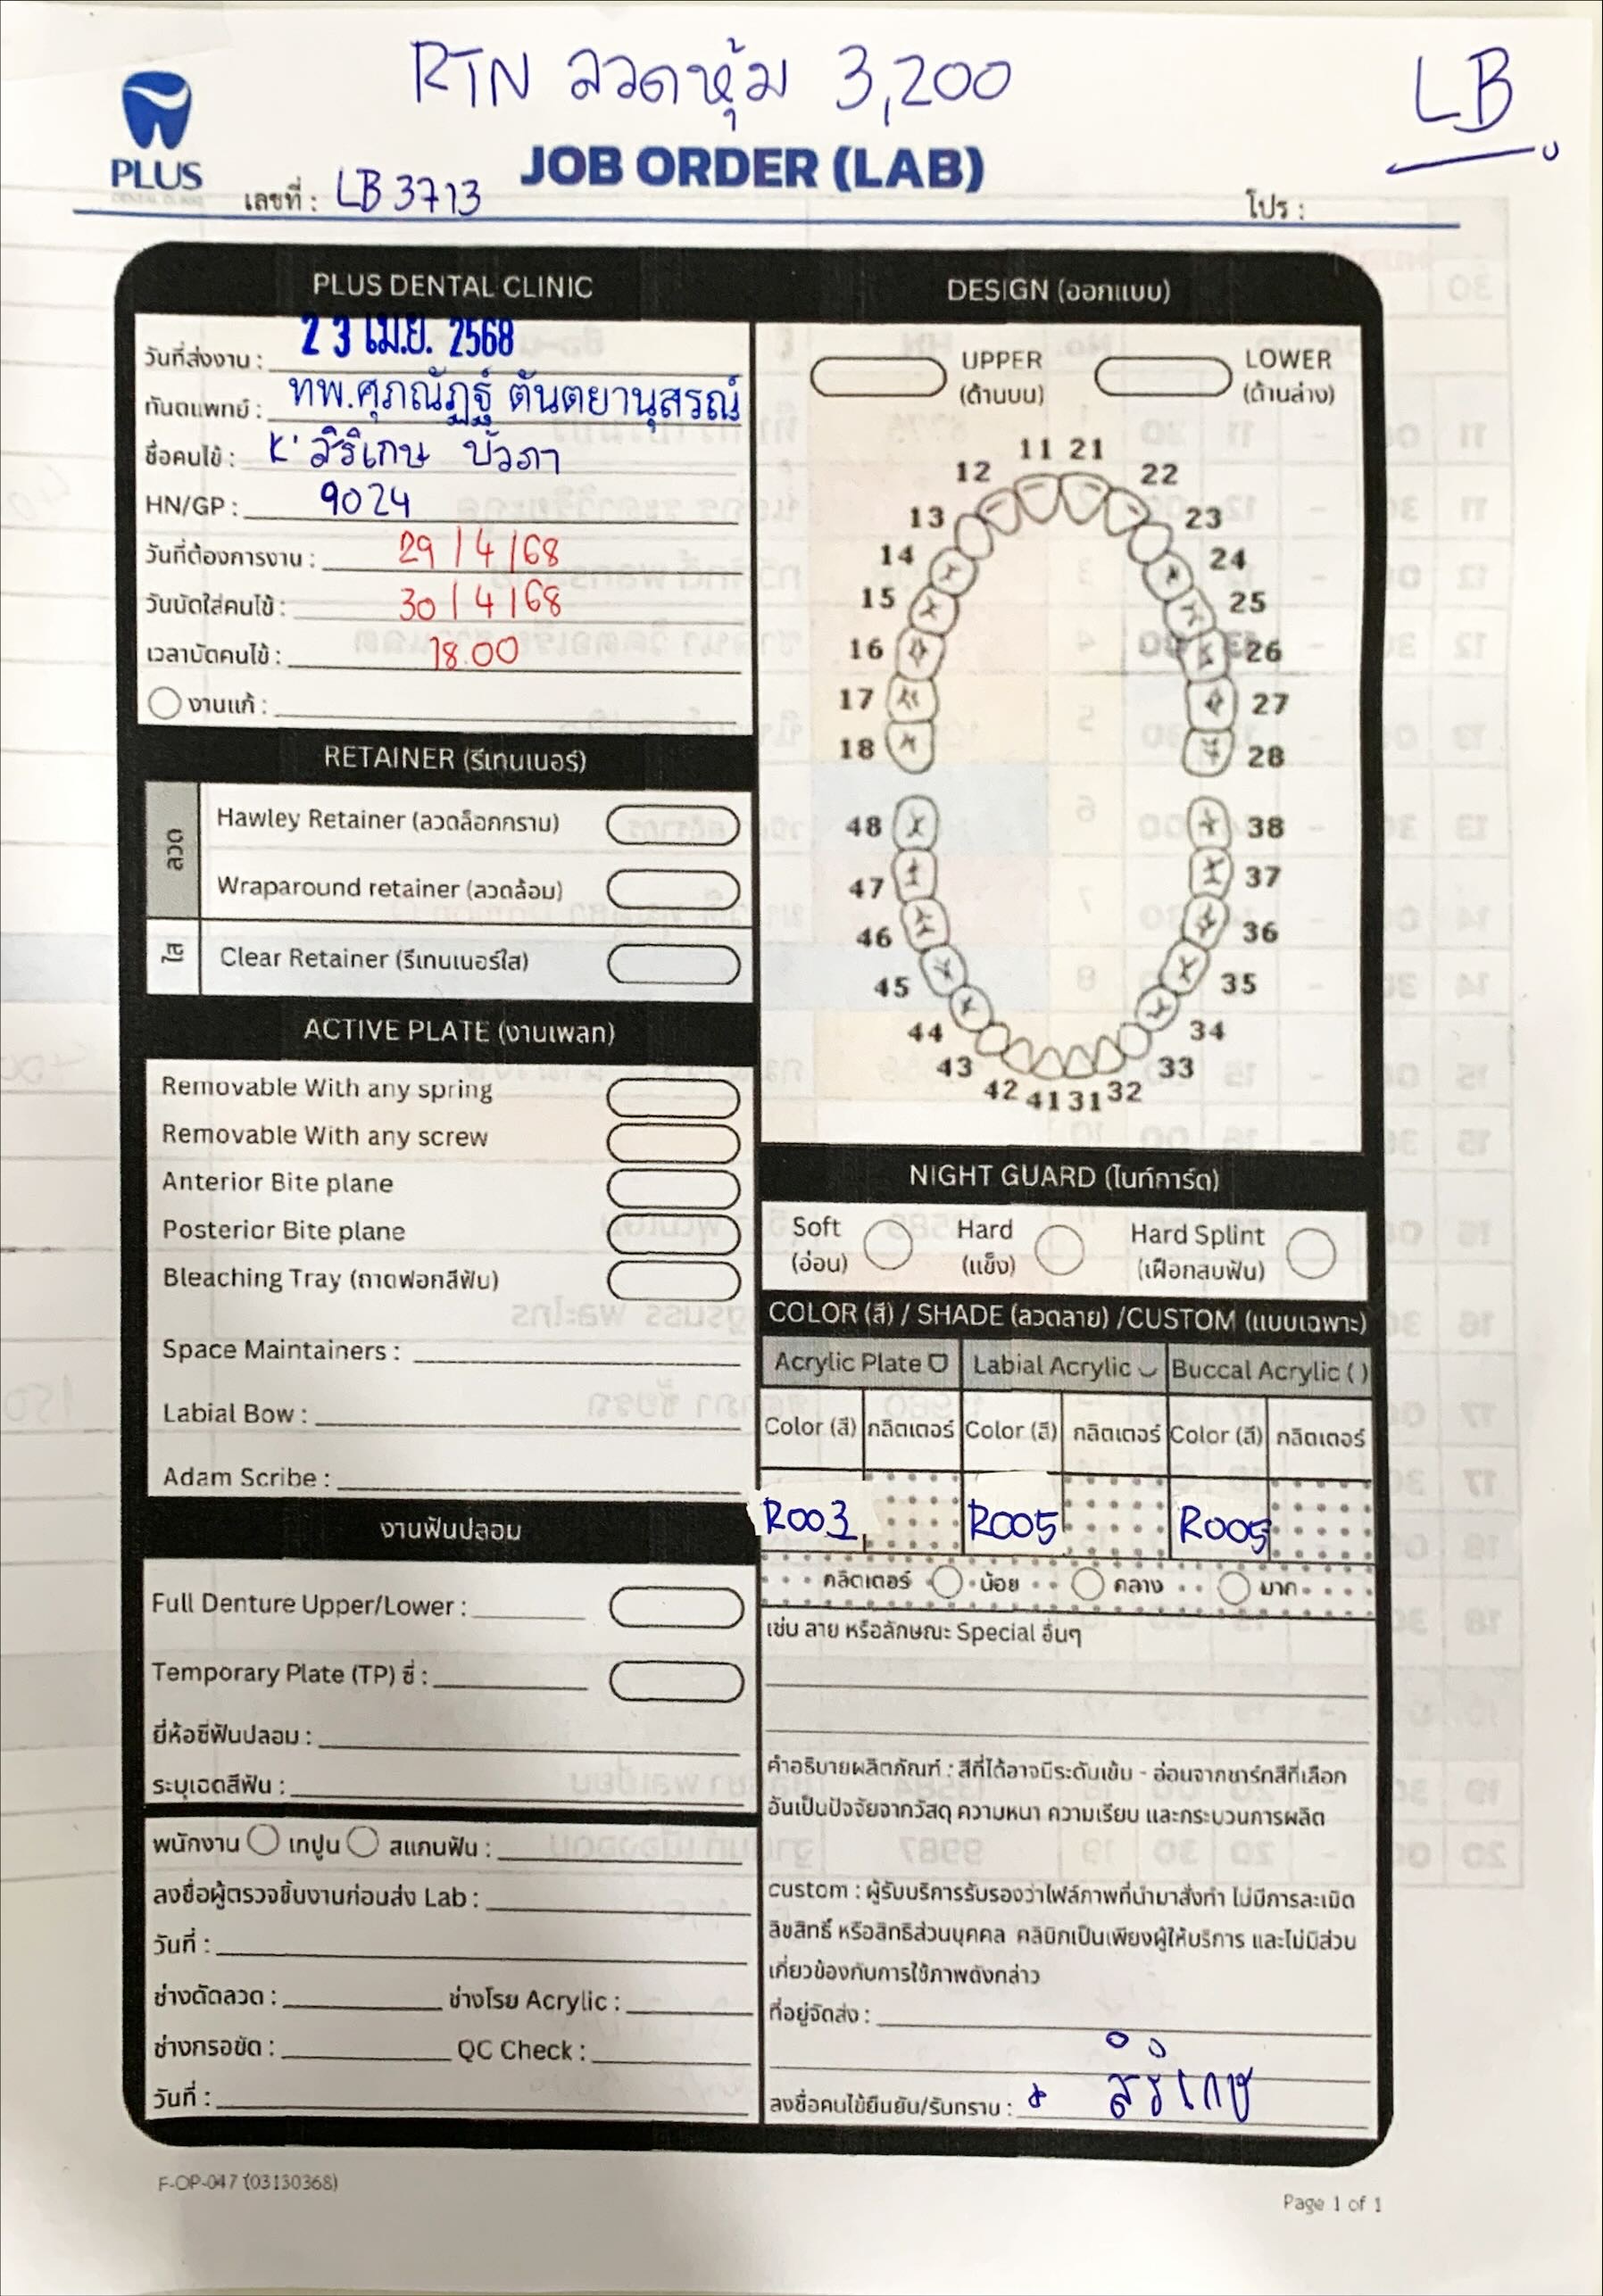 RTN ลวดหุ้ม 3,200
LB
PLUS
JOB ORDER (LAB)
เลขที่ : LB3713
โปร :
PLUS DENTAL CLINIC
วันที่ส่งงาน : 23 เม.ย. 2568
ทันตแพทย์ : ทพ.ศุภณัฏฐ์ ตันตยานุสรณ์
ชื่อคนไข้ : K' สิริเกษ บัวภา
HN/GP : 9024
วันที่ต้องการงาน : 29/4/68
วันนัดใส่คนไข้ : 30/4/68
เวลานัดคนไข้ : 18.00
งานแก้ :
RETAINER (รีเทนเนอร์)
ลวด
Hawley Retainer (ลวดล็อกกราม)
Wraparound retainer (ลวดล้อม)
ใส
Clear Retainer (รีเทนเนอร์ใส)
ACTIVE PLATE (งานเพลท)
Removable With any spring
Removable With any screw
Anterior Bite plane
Posterior Bite plane
Bleaching Tray (ถาดฟอกสีฟัน)
Space Maintainers :
Labial Bow :
Adam Scribe :
งานฟันปลอม
Full Denture Upper/Lower :
Temporary Plate (TP) ซี่ :
ยี่ห้อซี่ฟันปลอม :
ระบุเฉดสีฟัน :
พนักงาน เทปูน สแกนฟัน :
ลงชื่อผู้ตรวจชิ้นงานก่อนส่ง Lab :
วันที่ :
ช่างดัดลวด : ช่างโรย Acrylic :
ช่างกรอขัด : QC Check :
วันที่ :
DESIGN (ออกแบบ)
UPPER (ด้านบน)
LOWER (ด้านล่าง)
11 21
12 22
13 23
14 24
15 25
16 26
17 27
18 28
48 38
47 37
46 36
45 35
44 34
43 33
42 41 31 32
NIGHT GUARD (ไนท์การ์ด)
Soft (อ่อน)
Hard (แข็ง)
Hard Splint (เฝือกสบฟัน)
COLOR (สี) / SHADE (ลวดลาย) /CUSTOM (แบบเฉพาะ)
Acrylic Plate Labial Acrylic Buccal Acrylic ( )
Color (สี) กลิตเตอร์ Color (สี) กลิตเตอร์ Color (สี) กลิตเตอร์
R003 R005 R005
กลิตเตอร์ น้อย กลาง มาก
เช่น ลาย หรือลักษณะ Special อื่นๆ
คำอธิบายผลิตภัณฑ์ : สีที่ได้อาจมีระดับเข้ม - อ่อนจากชาร์ทสีที่เลือก
อันเป็นปัจจัยจากวัสดุ ความหนา ความเรียบ และกระบวนการผลิต
custom : ผู้รับบริการรับรองว่าไฟล์ภาพที่นำมาสั่งทำ ไม่มีการละเมิด
ลิขสิทธิ์ หรือสิทธิส่วนบุคคล คลินิกเป็นเพียงผู้ให้บริการ และไม่มีส่วน
เกี่ยวข้องกับการใช้ภาพดังกล่าว
ที่อยู่จัดส่ง :
ลงชื่อคนไข้ยืนยัน/รับทราบ : สิริเกษ
F-OP-047 (03130368)
Page 1 of 1